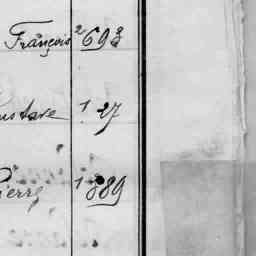 François 2693
ustave 1 27
ierre 1889